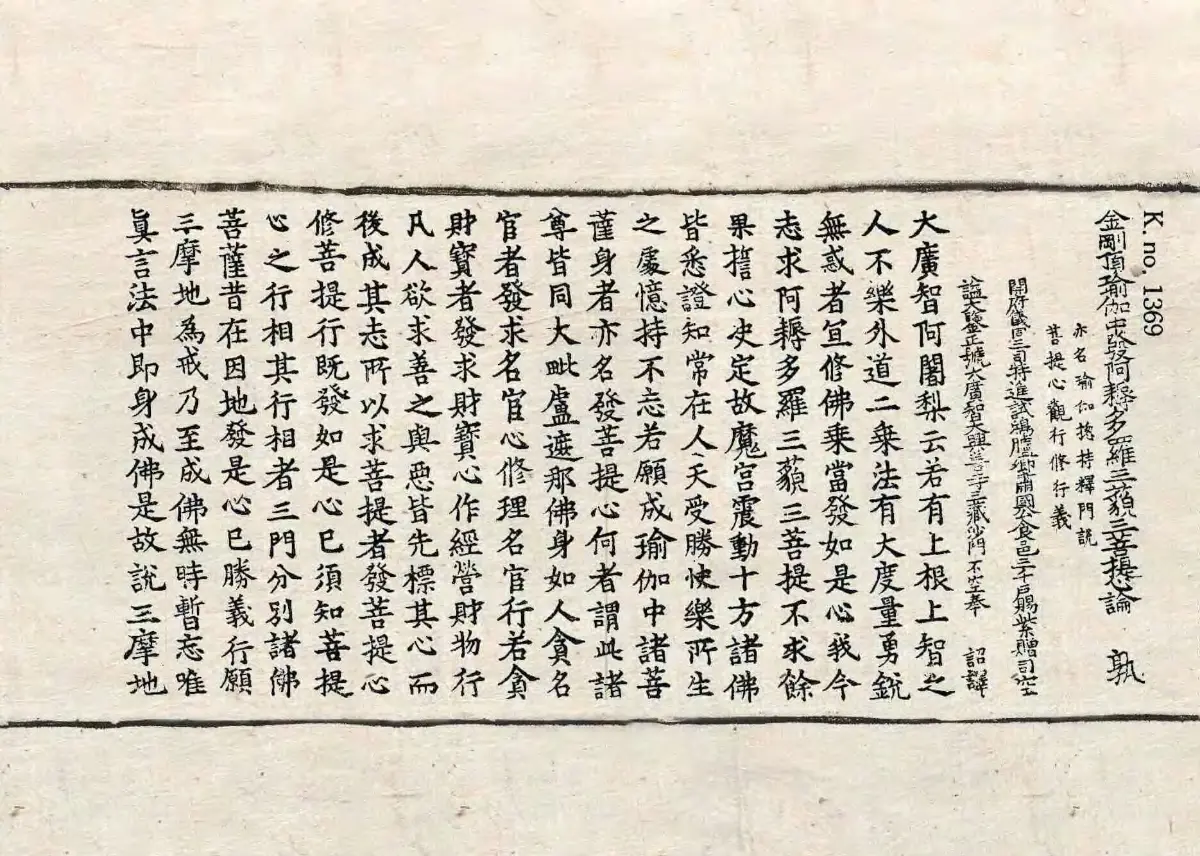 K. no. 1369
金剛頂瑜伽中發阿耨多羅三藐三菩提心論 孰
亦名瑜伽惣持釋門說
菩提心觀行修行義
開府儀同三司特進試鴻臚卿肅國公食邑三千戶賜紫贈司空
謚大鑒正號大廣智大興善寺三藏沙門不空奉 詔譯
大廣智阿闍梨云若有上根上智之
人不樂外道二乘法有大度量勇銳
無惑者宜修佛乘當發如是心我今
志求阿耨多羅三藐三菩提不求餘
果誓心決定故魔宮震動十方諸佛
皆悉證知常在人天受勝快樂所生
之處憶持不忘若願成瑜伽中諸菩
薩身者亦名發菩提心何者謂此諸
尊皆同大毗盧遮那佛身如人貪名
官者發求名官心修理名官行若貪
財寶者發求財寶心作經營財物行
凡人欲求善之與惡皆先標其心而
後成其志所以求菩提者發菩提心
修菩提行既發如是心已須知菩提
心之行相其行相者三門分別諸佛
菩薩昔在因地發是心已勝義行願
三摩地為戒乃至成佛無時暫忘唯
真言法中即身成佛是故說三摩地